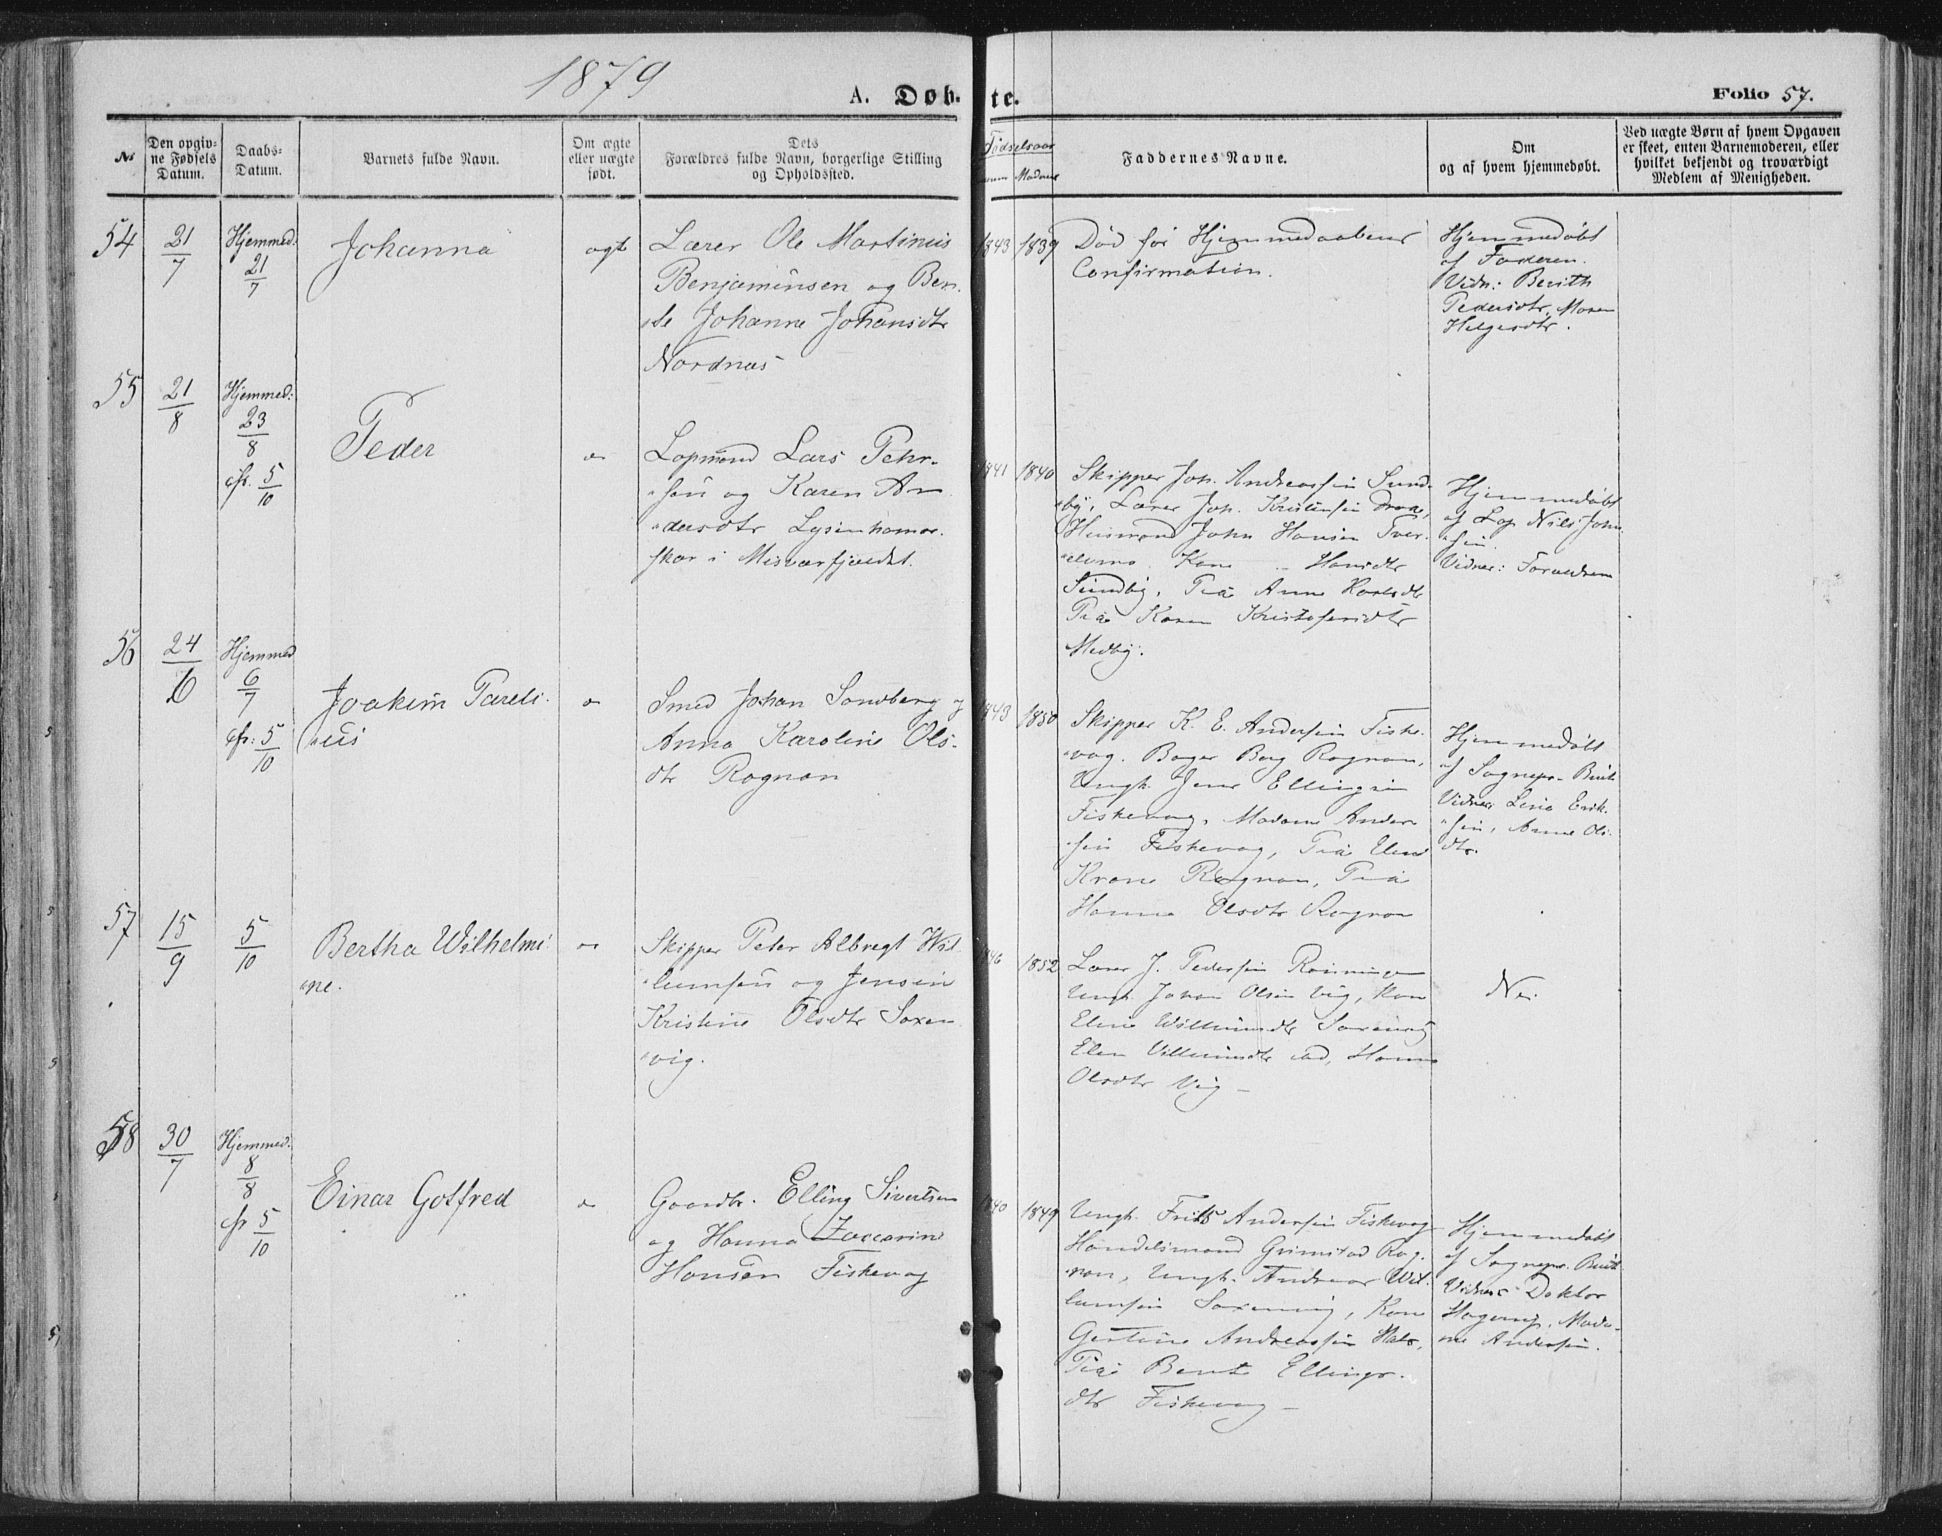 1879
A. Døb-
te.
Folio 57.
№
Den opgiv-
ne Fødsels
Datum.
Daabs-
Datum.
Barnets fulde Navn.
Om ægte
eller uægte
født.
Dets
Forældres fulde Navn, borgerlige Stilling
og Opholdssted.
Fødselsaar
Moderens
Faddernes Navne.
Om
og af hvem hjemmedøbt.
Ved uægte Børn af hvem Opgaven
er skeet, enten Barnemoderen, eller
hvilket bekjendt og troværdigt
Medlem af Menigheden.
54
21/7
Hjemmed:
21/7
Johanna
ægte
Lærer Ole Martinus
Benjaminsen og Ber-
"te Johanne Johansdtr
Nordnæs
1843
1839
Død før Hjemmedaabens
Confirmation.
Hjemmedøbt
af Faderen.
Vidn: Berith
Pedersdtr, Maren
Helgesdtr.
55
21/8
Hjemmed:
23/8
cfr. 5/10
Peder
"
Lapmand Lars Pehr-
"sen og Karen An-
"dersdtr Lysenhamar-
skar i Misværfjeldet.
1841
1840
Skipper Joh. Andreassen Sund-
"by, Lærer Joh. Kristensen
Husmand John Hansen Tver-
Kone Hansdtr
Sundby, Pia Anne
Pia Karen Kristofersdtr
Medby.
Hjemmedøbt
af Lap Nils John-
"sen.
Vidner: Forældrene
56
24/6
Hjemmed
6/7
cfr: 5/10
Joakim Pareli-
"us
"
Smed Johan Sandberg og
Anna Karoline Ols-
dtr Rognan
1843
1850
Skipper K. E. Andersen Fiske-
"vag. Bager Berg Rognan,
Ungk. Jens Ellingsen
Fiskevag, Madam Ander-
"sen Fiskevag, Pia Elen
Krane Rognan, Pia
Hanna Olsdtr Rognan
Hjemmedøbt
af Sognepr.
Vidner: Lina Erik-
"sen, Anne Ols-
dtr.
57
15/9
5/10
Bertha Wilhelmi-
"ne.
"
Skipper Peter Albregt Wil-
"lumsen og Jensine
Kristine Olsdtr Saxen-
"vig.
1846
1852
Lærer J. Pedersen
Ungk. Johan Olsen Vig, Kone
Elene Willumsdtr Saxenvig
Elen Villumsdtr ibd, Hanna
Olsdtr Vig –
Nei.
58
30/7
Hjemmed:
8/8
cfr 5/10
Einar Gotfred
"
Gaardbr. Elling Sivertsen
og Hanna Zaccarine
Hansen Fiskevag
1840
1849
Ungk. Frits Andersen Fiskevag
Handelsmand Grimstad Rog-
"nan, Ungk. Andreas Wil-
lumsen Saxenvig, Kone
Gertine Andreassen Hals,
Pia Bent Ellings-
dtr Fiskevag –
Hjemmedøbt
af Sognepr.
Vidner Doktor
Hagerup, Mada-
me Andersen.